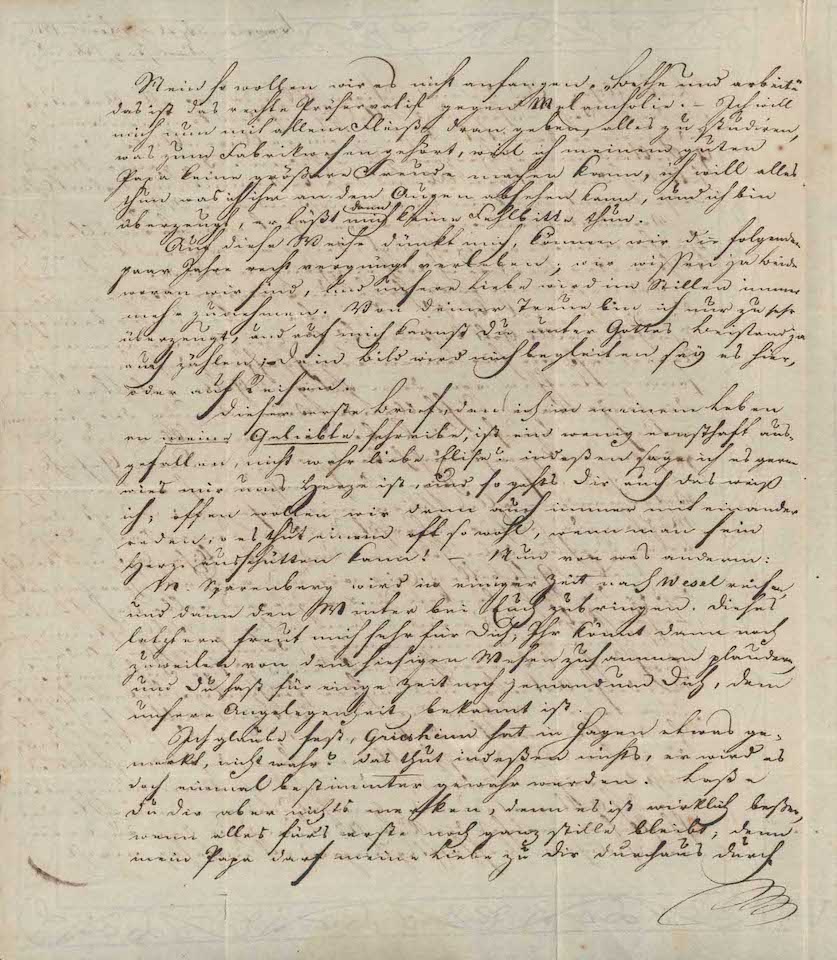 Nein so wollen wir es nicht anfangen. „Bethe und arbeite“
das ist das rechte Präservatif gegen Melancholie. – Ich will
mich nun mit allem Fleiße dran geben, alles zu studiren,
was zum Fabrikwesen gehört, weil ich meinem guten
Papa keine größere Freude machen kann, ich will alles
thun was ich ihm an den Augen absehen kann, und ich bin
überzeugt, er läßt mich dann keine Fehlbitte thun.
Auf diese Weise dünkt mich, können wir die folgenden
paar Jahre recht vergnügt verleben; wir wissen ja beide
woran wir sind, und unsere Liebe wird im Stillen immer
mehr zunehmen. Von deiner Treue bin ich nur zu sehr
überzeugt, und auf mich kannst Du unter Gottes Beistand ja
auch zählen; dein Bild wird mich begleiten sey es hier,
oder auf Reisen.
Dieser erste Brief, den ich in meinem Leben
an meine Geliebte schreibe, ist ein wenig ernsthaft aus-
gefallen, nicht wahr liebe Elise? indeßen sage ich es gern
wies mir ums Herze ist, und so gehts dir auch das weiß
ich; offen wollen wir denn auch immer mit einander
reden, es thut einem oft so wohl, wenn man sein
Herz ausschütten kann! – Nun von was anderm:
M. Sparenberg wird in einiger Zeit nach Wesel reisen,
und dann den Winter bei Euch zubringen. Dieses
letztere freut mich sehr für Dich, Ihr könnt dann noch
zuweilen von dem hiesigen Wesen zusammen plaudern,
und Du hast für einige Zeit noch jemand um Dich, dem
unsere Angelegenheit bekannt ist.
Ich glaube fast, Griesheim hat in Hagen etwas ge-
merkt, nicht wahr? das thut indeßen nichts, er wird es
doch einmal bestimmter gewahr werden. Laße
Du dir aber nichts merken, denn es ist wirklich beßer,
wenn alles fürs erste noch ganz stille bleibt; denn
mein Papa darf meine Liebe zu dir durchaus durch